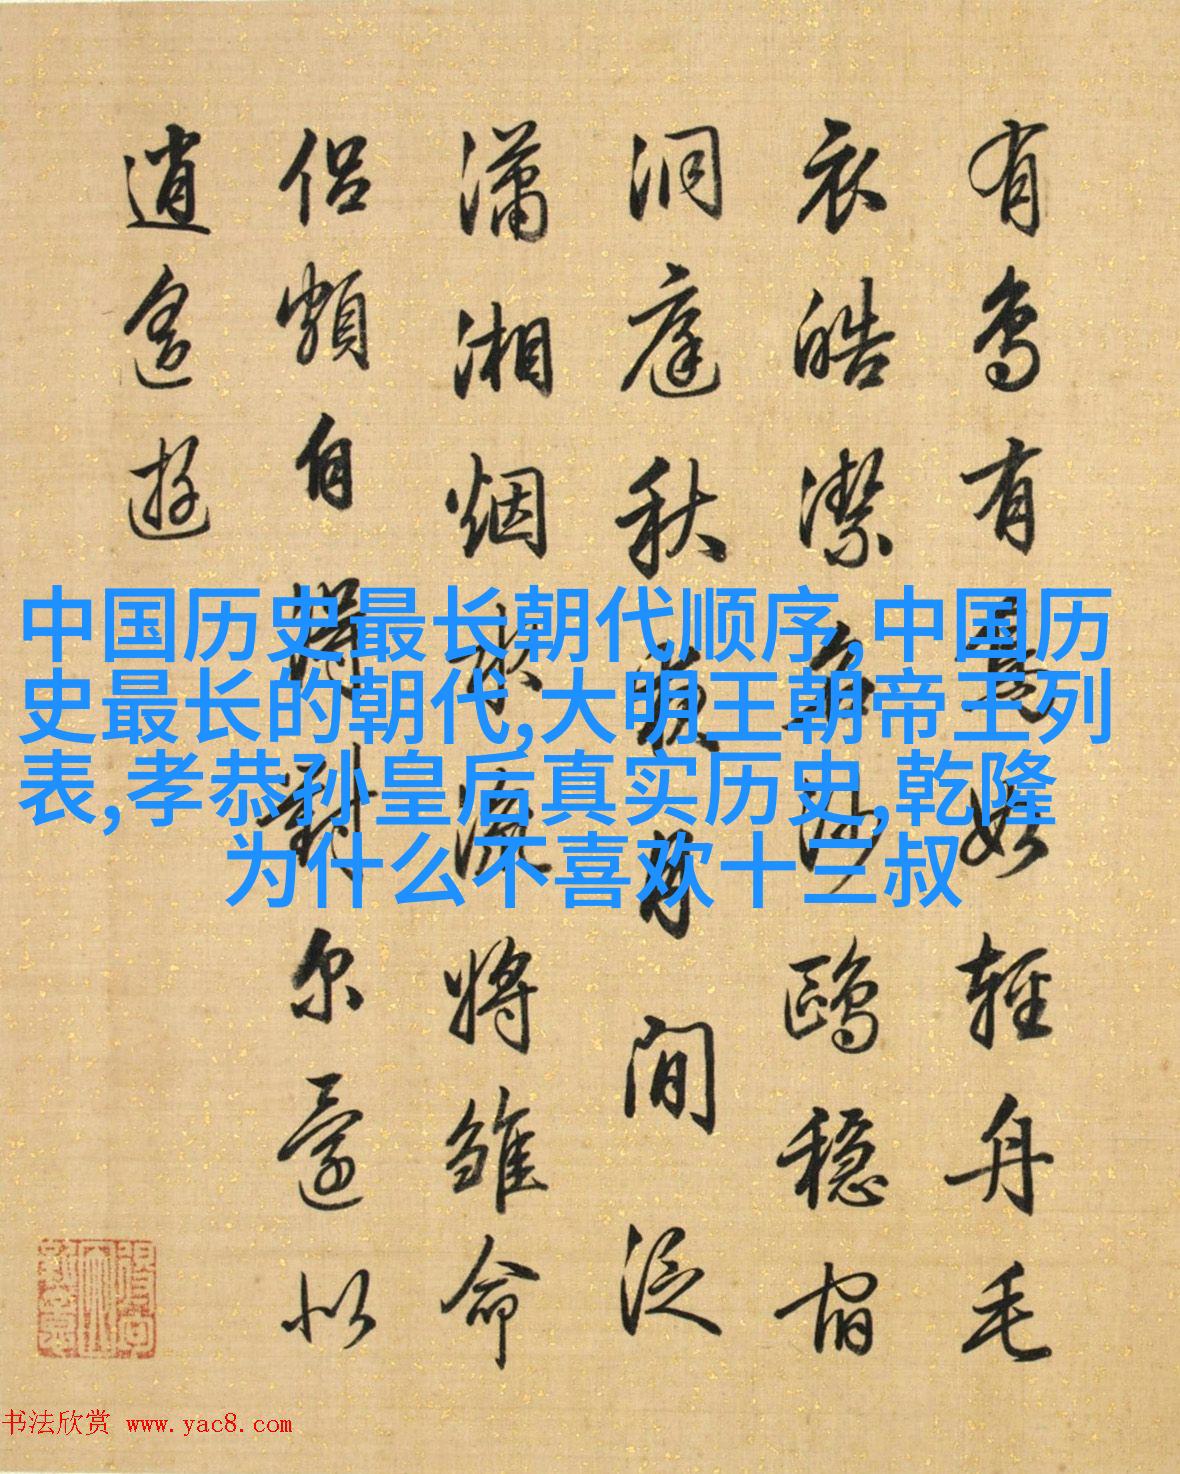 有鳥有鳥如輕舟毛
衣皓潔沙鷗穩宿
洞庭秋夜月間泛
瀟湘烟流將雛命
侶頻自得對尔還以
逍遙遊
中国历史最长朝代顺序,中国历
史最长的朝代,大明王朝帝王列
表,孝恭孙皇后真实历史,乾隆
为什么不喜欢十三叔
书法欣赏 www.yac8.com